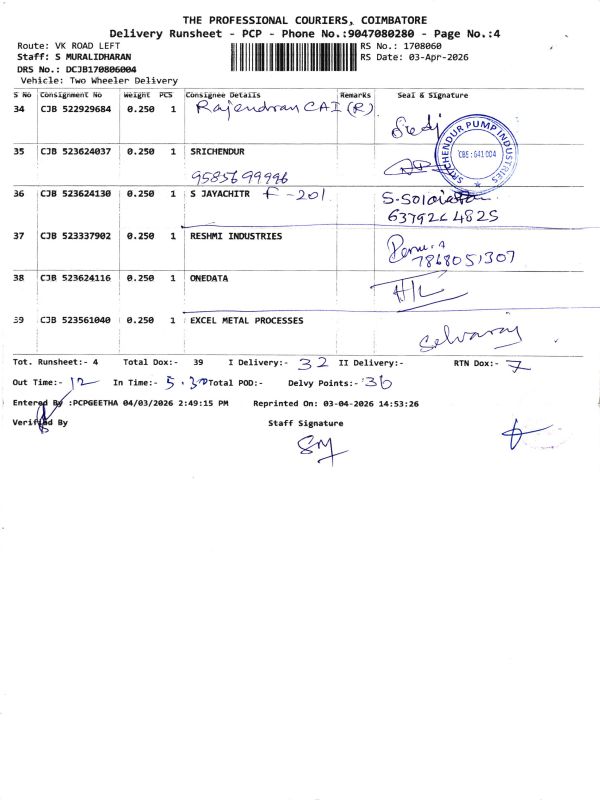 THE PROFESSIONAL COURIERS, COIMBATORE
Delivery Runsheet - PCP - Phone No.:9047080280 - Page No.:4
Route: VK ROAD LEFT RS No.: 1708060
Staff: S MURALIDHARAN RS Date: 03-Apr-2026
DRS No.: DCJB170806004
Vehicle: Two Wheeler Delivery
S No Consignment No Weight PCS Consignee Details Remarks Seal & Signature
34 CJB 522929684 0.250 1 Rajendran CAI (R)
35 CJB 523624037 0.250 1 SRICHENDUR
SRICHENDUR PUMP INDUSTRIES
CBE - 641 004
9585699996
36 CJB 523624130 0.250 1 S JAYACHITR F-201
6379264825
37 CJB 523337902 0.250 1 RESHMI INDUSTRIES
7868051307
38 CJB 523624116 0.250 1 ONEDATA H/L
39 CJB 523561040 0.250 1 EXCEL METAL PROCESSES
Selvaraj
Tot. Runsheet:- 4 Total Dox:- 39 I Delivery:- 32 II Delivery:- RTN Dox:- 7
Out Time:- 12 In Time:- 5.30 Total POD:- Delvy Points:- 36
Entered By :PCPGEETHA 04/03/2026 2:49:15 PM Reprinted On: 03-04-2026 14:53:26
Verified By Staff Signature